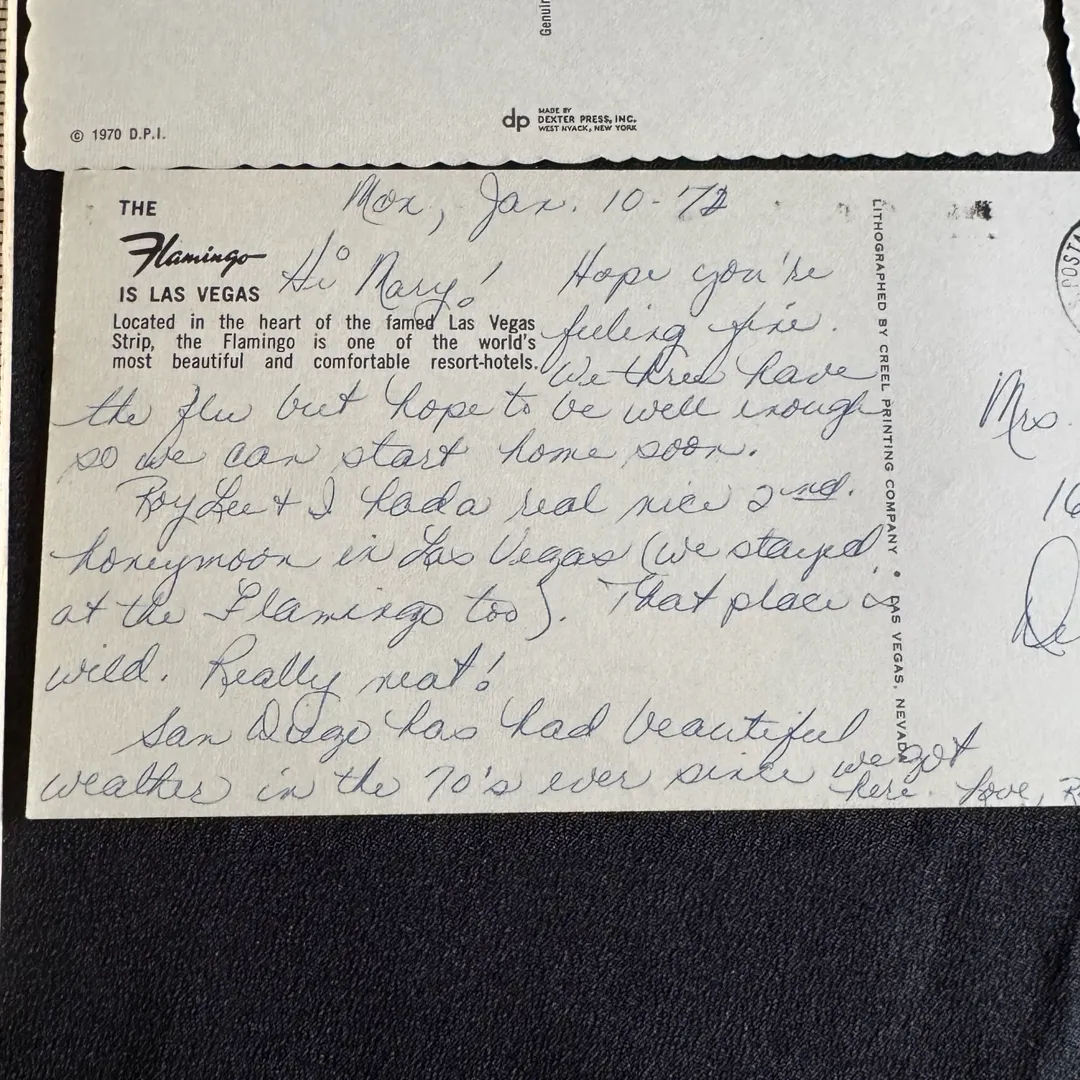 Genuin
© 1970 D.P.I.
dp MADE BY
DEXTER PRESS, INC.
WEST NYACK, NEW YORK
THE
Flamingo
IS LAS VEGAS
Located in the heart of the famed Las Vegas
Strip, the Flamingo is one of the world's
most beautiful and comfortable resort-hotels.
Mon, Jan. 10-72
Hi Mary! Hope you're
feeling fine.
We three have
the flu but hope to be well enough
so we can start home soon.
Roy Lee + I had a real nice 2nd.
honeymoon in Las Vegas (we stayed
at the Flamingo too). That place is
wild. Really neat!
San Diego has had beautiful
weather in the 70's ever since we got
here. Love, R
LITHOGRAPHED BY CREEL PRINTING COMPANY • LAS VEGAS, NEVADA
POSTA
Mrs.
16
De